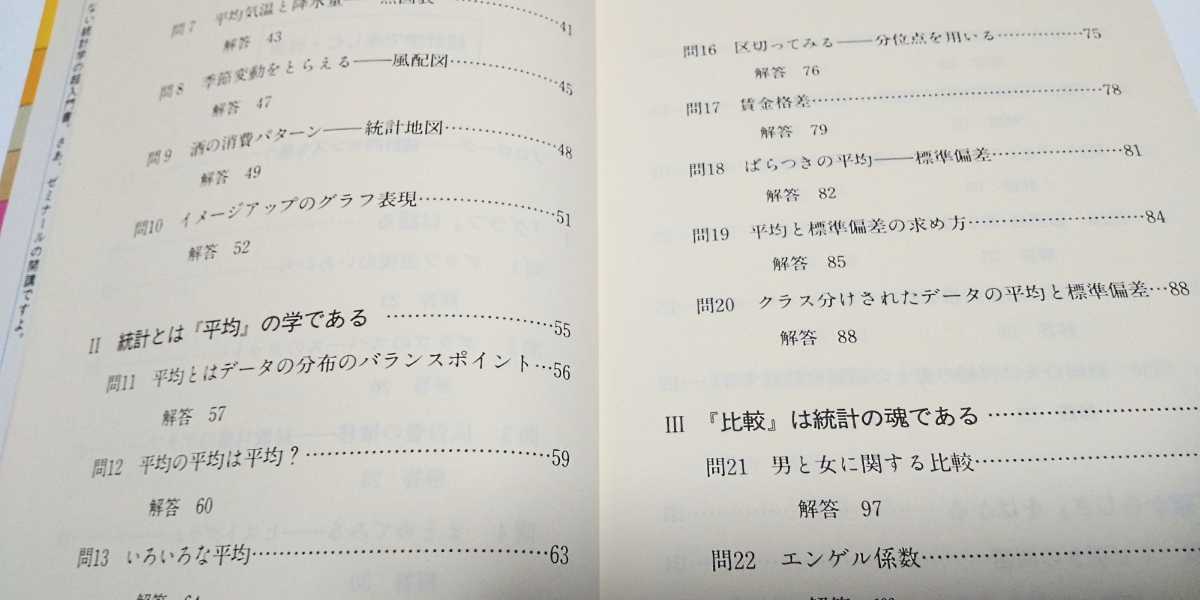 ない統計学の超入門書。さあ、ゼミナールの開講ですよ。
問7 平均気温と降水量
解答 43
問8 季節変動をとらえる——風配図……………45
解答 47
問9 酒の消費パターン——統計地図……………48
解答 49
問10 イメージアップのグラフ表現……………51
解答 52
II 統計とは『平均』の学である ……………55
問11 平均とはデータの分布のバランスポイント…56
解答 57
問12 平均の平均は平均？……………59
解答 60
問13 いろいろな平均……………63
解答 64
問16 区切ってみる——分位点を用いる……………75
解答 76
問17 賃金格差……………78
解答 79
問18 ばらつきの平均——標準偏差……………81
解答 82
問19 平均と標準偏差の求め方……………84
解答 85
問20 クラス分けされたデータの平均と標準偏差…88
解答 88
III 『比較』は統計の魂である ……………
問21 男と女に関する比較……………
解答 97
問22 エンゲル係数……………
解答